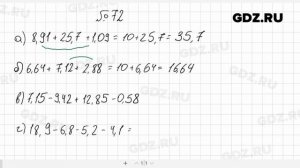 GDZ.RU
№72
а) 8,91 + 25,7 + 1,09 = 10 + 25,7 = 35,7
б) 6,64 + 7,12 + 2,88 = 10 + 6,64 = 16,64
в) 7,15 - 9,42 + 12,85 - 0,58
г) 18,9 - 6,8 - 5,2 - 4,1 =